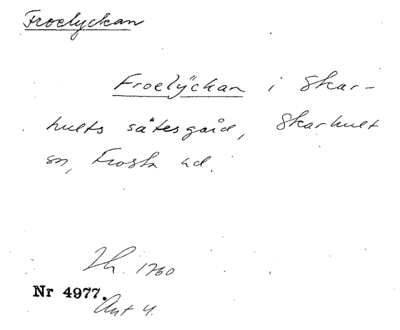 Froelyckan
Froelÿckan i Skar-
hults sätesgård, Skarhult
sn, Frosta hd.
1760
Nr 4977.
Akt 4.